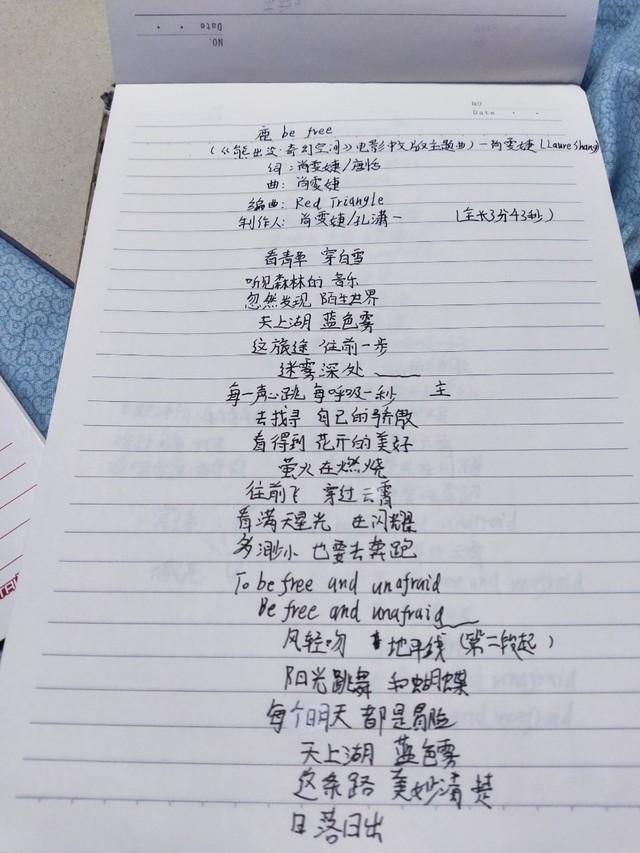 Date
NO.
NO.
Date
鹿 be free
(《熊出没·奇幻空间》电影中文版主题曲)-尚雯婕(Laure Shang)
词:尚雯婕/唐恬
曲:尚雯婕
编曲: Red Triangle
制作人: 尚雯婕/孔潇一 (全长3分43秒)
看青草 穿白雪
听见森林的 音乐
忽然发现 陌生世界
天上湖 蓝色雾
这旅途 往前一步
迷雾深处
每一声心跳 每呼吸一秒 主
去找寻 自己的骄傲
看得到 花开的美好
萤火在燃烧
往前飞 穿过云霄
看满天星光 在闪耀
多渺小 也要去奔跑
To be free and unafraid
Be free and unafraid
风轻吻 地平线 (第二段起)
阳光跳舞 和蝴蝶
每个明天 都是冒险
天上湖 蓝色雾
这条路 美妙清楚
日落日出